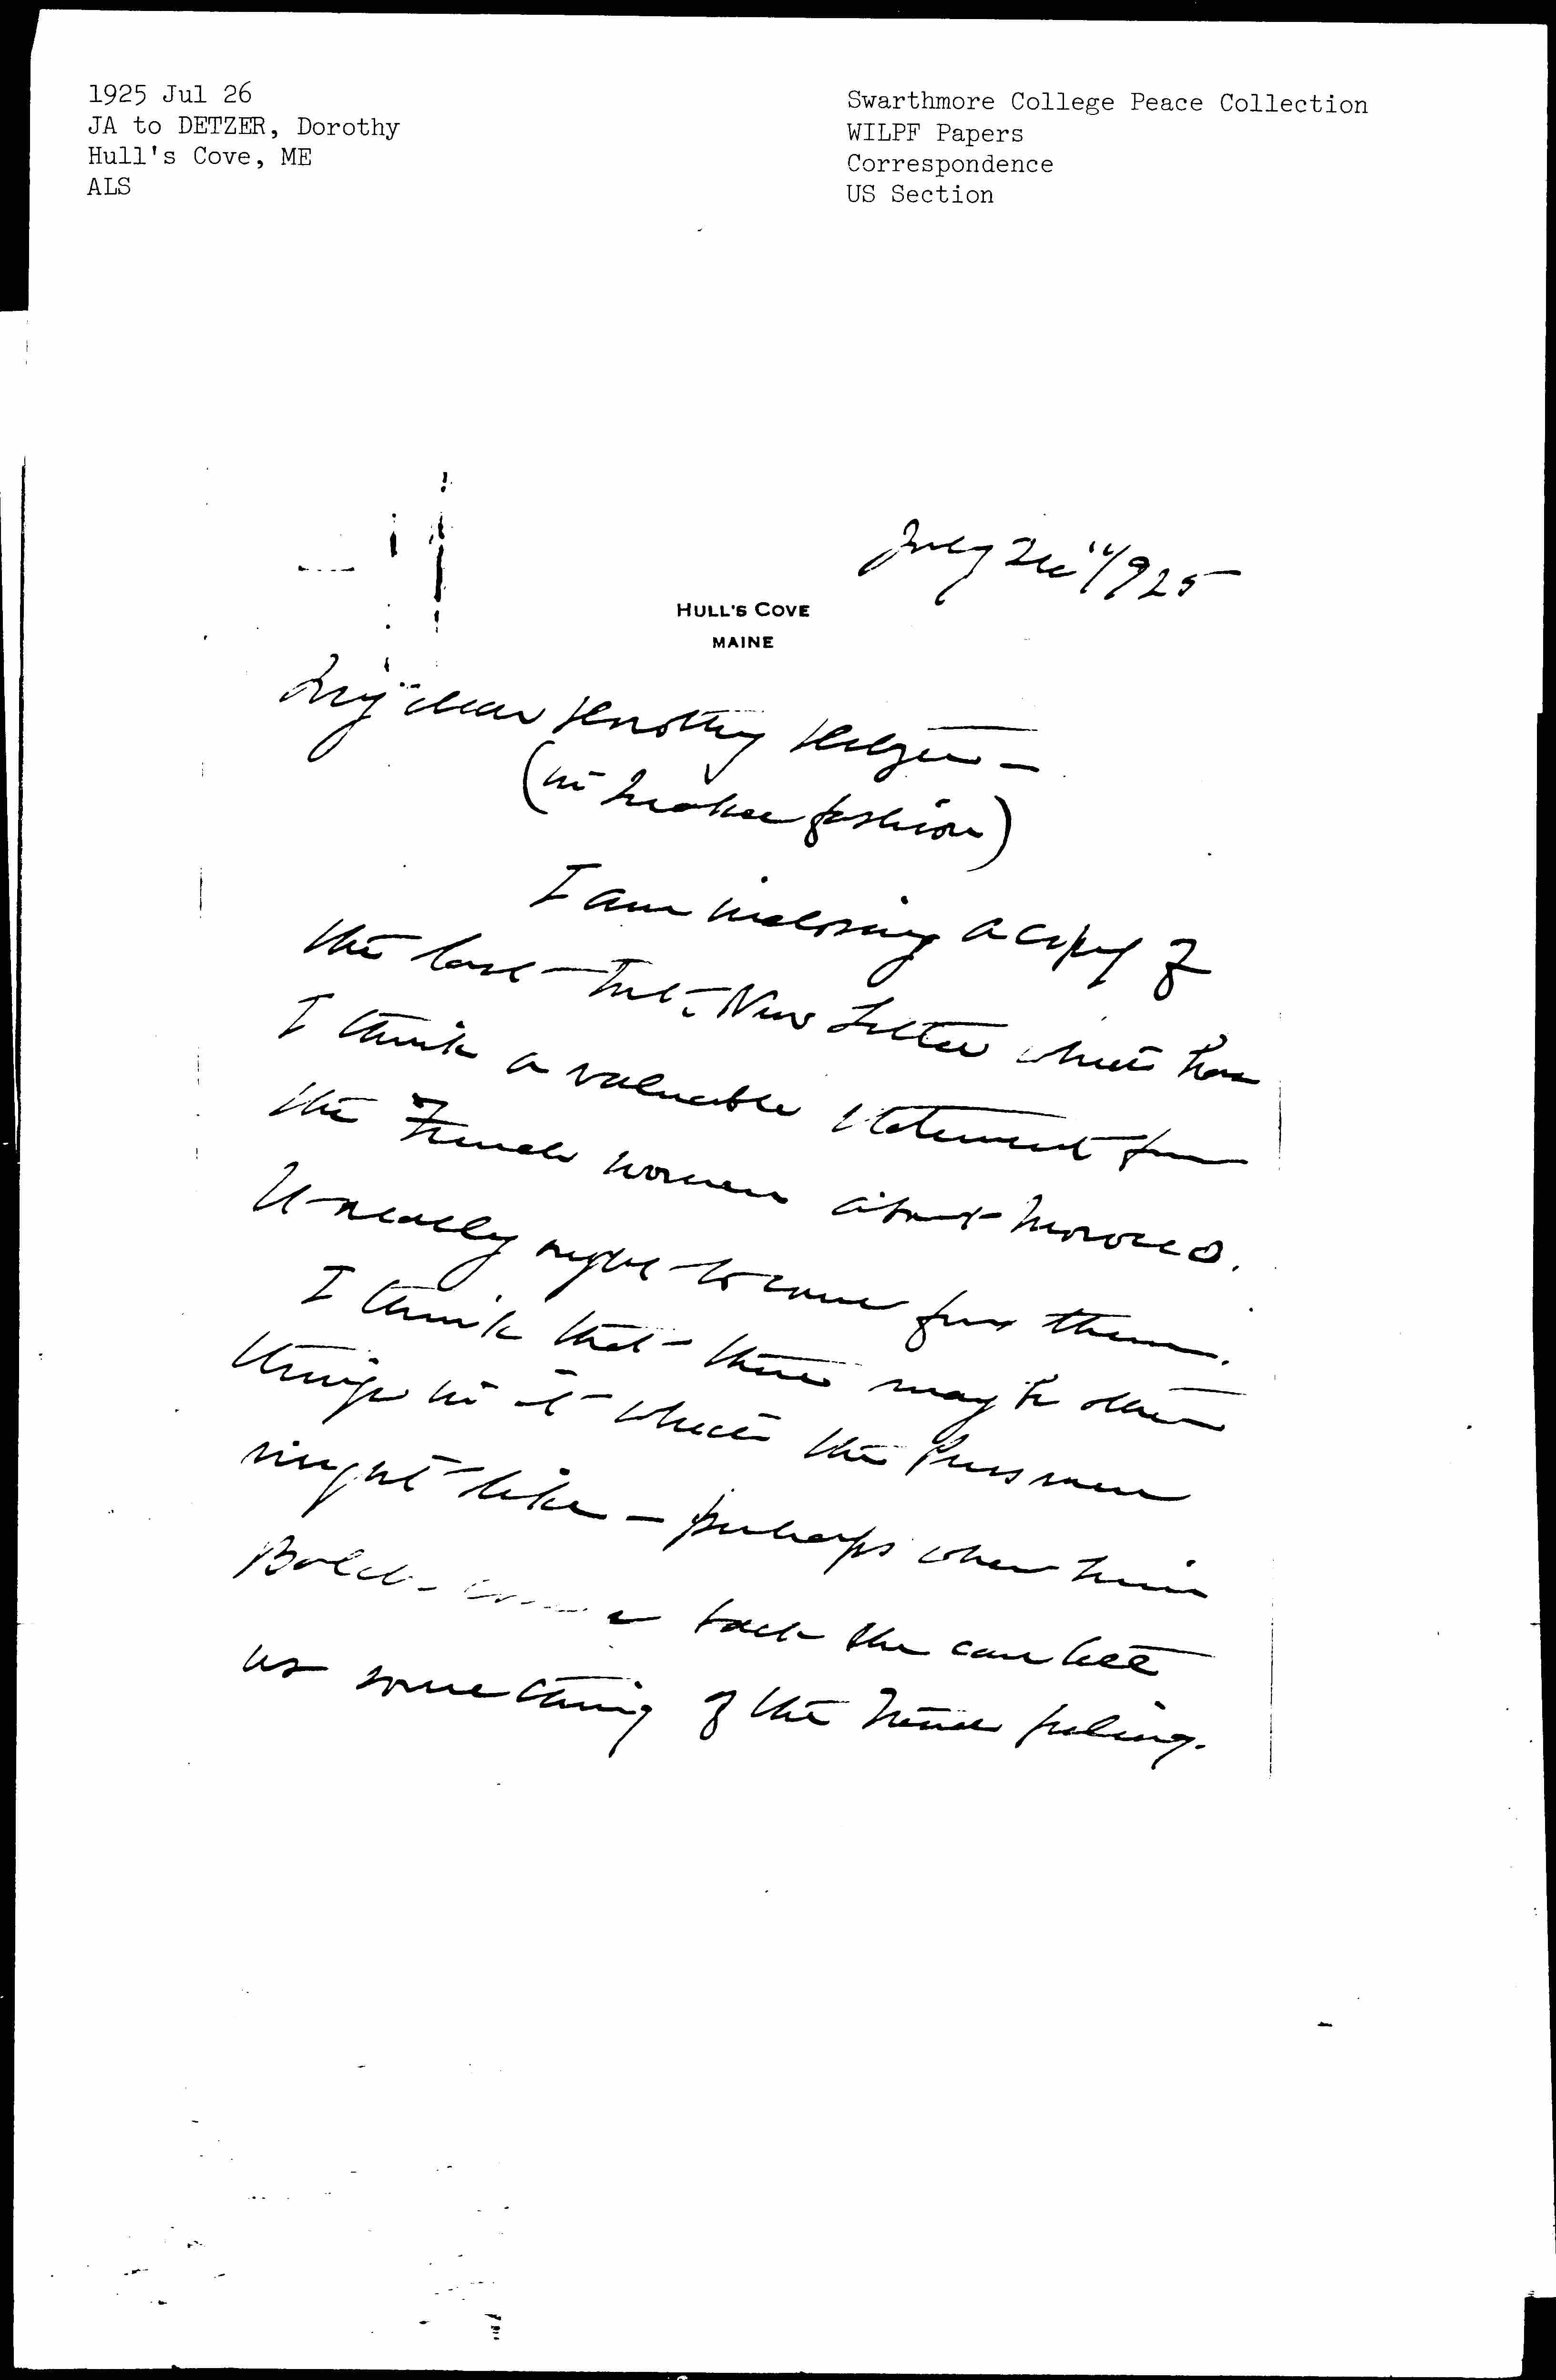 1925 Jul 26
JA to DETZER, Dorothy
Hull's Cove, ME
ALS
Swarthmore College Peace Collection
WILPF Papers
Correspondence
US Section
July 26" 1925
HULL'S COVE
MAINE
My dear Dorothy Detzer —
(in Quaker fashion)
I am inclosing a copy of
the last Int. News Letter which has
I think a valuable statement from
the French women about Morocco.
It really ought to come from them.
I think that there may be other
things in it which the Pressmen
might like — perhaps when Miss
Balch comes back she can tell
us something of the French feeling.